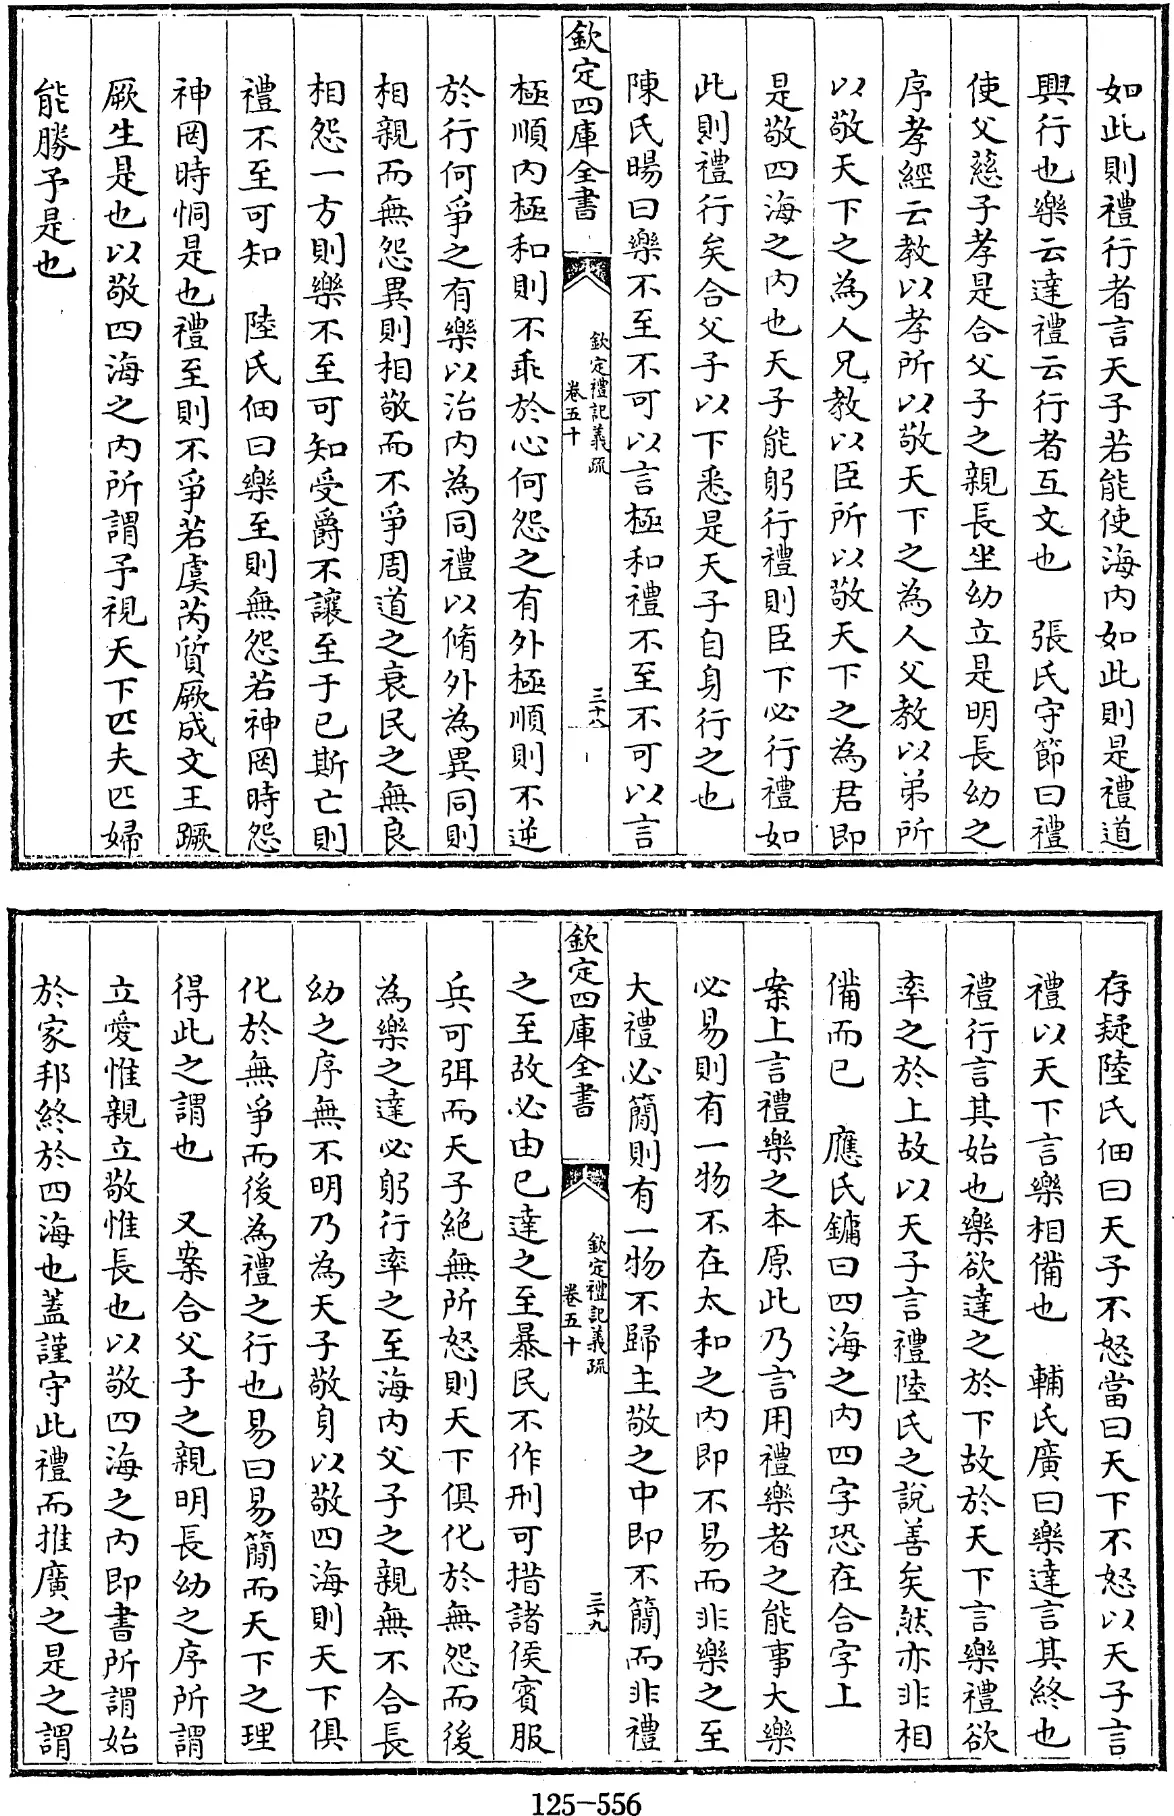 如此則禮行者言天子若能使海内如此則是禮道
興行也樂云達禮云行者互文也　張氏守節曰禮
使父慈子孝是合父子之親長坐幼立是明長幼之
序孝經云教以孝所以敬天下之為人父教以弟所
以敬天下之為人兄教以臣所以敬天下之為君即
是敬四海之内也天子能躬行禮則臣下必行禮如
此則禮行矣合父子以下悉是天子自身行之也
陳氏暘曰樂不至不可以言極和禮不至不可以言
欽定四庫全書
欽定禮記義疏
卷五十
三十八
極順内極和則不乖於心何怨之有外極順則不逆
於行何爭之有樂以治内為同禮以脩外為異同則
相親而無怨異則相敬而不爭周道之衰民之無良
相怨一方則樂不至可知受爵不讓至于已斯亡則
禮不至可知　陸氏佃曰樂至則無怨若神罔時怨
神罔時恫是也禮至則不爭若虞芮質厥成文王蹶
厥生是也以敬四海之内所謂予視天下匹夫匹婦
能勝予是也
存疑陸氏佃曰天子不怒當曰天下不怒以天子言
禮以天下言樂相備也　輔氏廣曰樂達言其終也
禮行言其始也樂欲達之於下故於天下言樂禮欲
率之於上故以天子言禮陸氏之說善矣然亦非相
備而已　應氏鏞曰四海之内四字恐在合字上
案上言禮樂之本原此乃言用禮樂者之能事大樂
必易則有一物不在太和之内即不易而非樂之至
大禮必簡則有一物不歸主敬之中即不簡而非禮
欽定四庫全書
欽定禮記義疏
卷五十
三十九
之至故必由已達之至暴民不作刑可措諸侯賓服
兵可弭而天子絶無所怒則天下俱化於無怨而後
為樂之達必躬行率之至海内父子之親無不合長
幼之序無不明乃為天子敬身以敬四海則天下俱
化於無爭而後為禮之行也易曰易簡而天下之理
得此之謂也　又案合父子之親明長幼之序所謂
立愛惟親立敬惟長也以敬四海之内即書所謂始
於家邦終於四海也蓋謹守此禮而推廣之是之謂
125-556